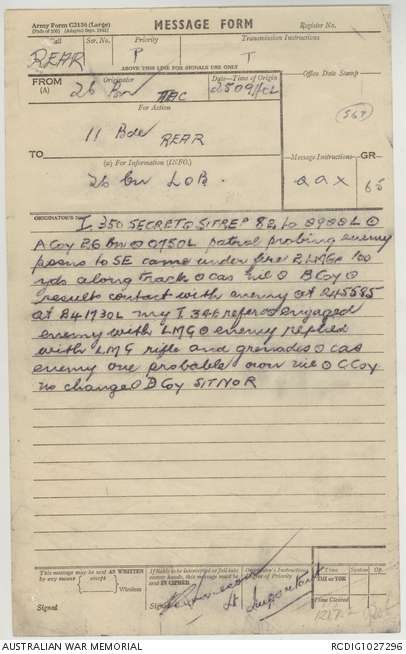 Army Form C2136 (Large)
(Pads of 100)
MESSAGE FORM
Register No.
Call
Ser. No.
Priority
Transmission Instructions
REAR
P
T
ABOVE THIS LINE FOR SIGNALS USE ONLY
FROM
(A)
Originator
Date—Time of Origin
Office Date Stamp
26 Bn
250910L
For Action
11 Bde REAR
TO
(W) For Information (INFO.)
Message Instructions
GR
26 Bn LOB
QQX
65
Originator's No.
I 350 SECRET O SITREP 82 to 0900L O
A Coy 26 Bn O 0750L patrol probing enemy
posns to SE came under fire 2 LMGs 100
yds along track O cas nil O B Coy O
results contact with enemy at 245585
at 241730L my I 346 refers engaged
enemy with LMG O enemy replied
with LMG rifle and grenades O cas
enemy one probable own nil O C Coy
no change O D Coy SITNOR
This message may be sent AS WRITTEN
by any means except Wireless
If liable to be intercepted or fall into
enemy hands, this message must be
sent IN CIPHER
Originator's Instructions
Degree of Priority
Time
System
Op.
THI or TOR
Time Cleared
Signed
Signed
Lt
Important
AUSTRALIAN WAR MEMORIAL
RCDIG1027296